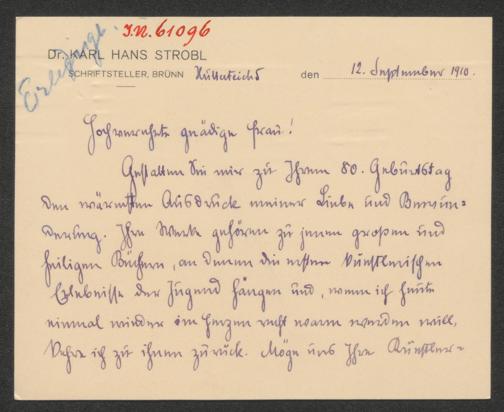 J.N. 61096
Erledigt.
Dr. KARL HANS STROBL
SCHRIFTSTELLER, BRÜNN
den 12. September 1910.
Hochverehrte gnädige Frau!
Gestatten Sie mir zu Ihrem 80. Geburtstag
den wärmsten Ausdruck meiner Liebe und Bewun=
derung. Ihre Werke gehören zu jenen großen und
heiligen Büchern, an denen die ersten künstlerischen
Erlebnisse der Jugend hängen und, wenn ich heute
einmal wieder im Herzen recht warm werden will,
kehre ich zu ihnen zurück. Möge uns Ihre Künstler=